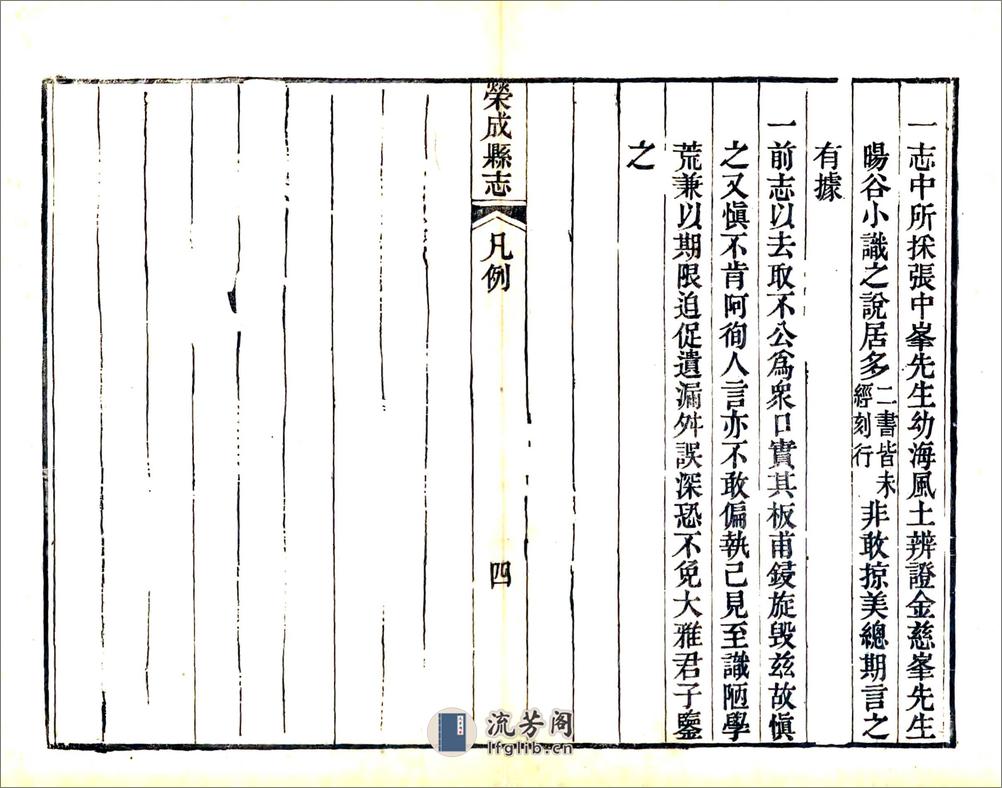 一志中所採張中峯先生幼海風土辨證金慈峯先生
暘谷小識之說居多二書皆未經刻行非敢掠美總期言之
有據
一前志以去取不公爲衆口實其板甫鋟旋毀玆故愼
之又愼不肯阿徇人言亦不敢偏執己見至識陋學
荒兼以期限迫促遺漏舛誤深恐不免大雅君子鑒
之
榮成縣志
凡例
四
流芳阁
lfglib.cn